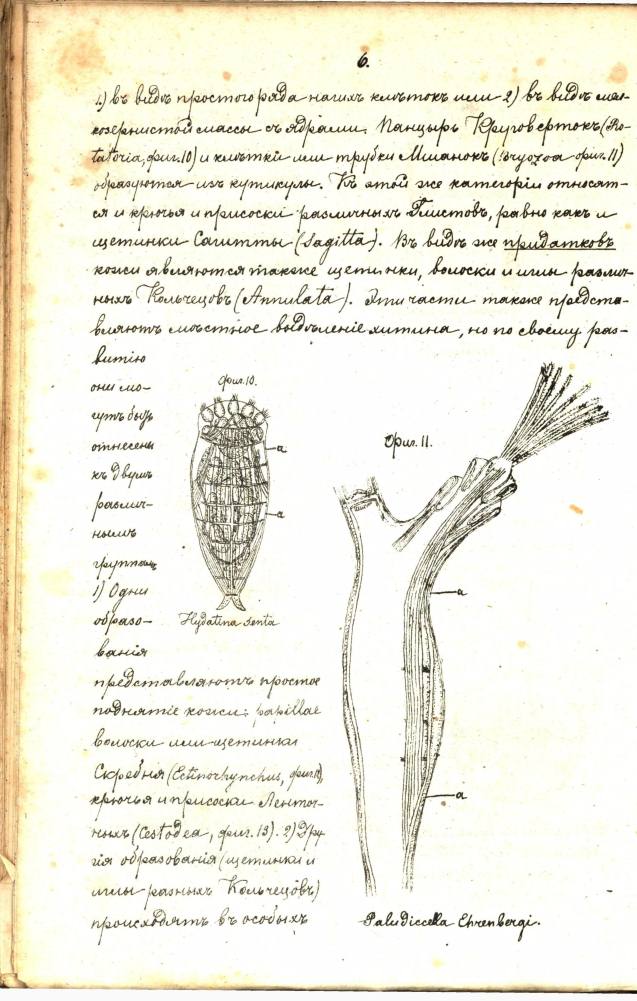 6.
1) въ видѣ простого ряда нагихъ клѣтокъ или 2) въ видѣ мел-
козернистой массы съ ядрами. Панцырь Круговертокъ (Ro-
tatoria, фиг. 10) и клѣтки или трубки Мшанокъ (Bryozoa фиг. 11)
образуются изъ кутикулы. Къ этой же категоріи относят-
ся и крючья и присоски различныхъ Глистовъ, равно какъ и
щетинки Сагитты (Sagitta). Въ видѣ же придатковъ
кожи являются также щетинки, волоски и иглы различ-
ныхъ Кольчецовъ (Annulata). Эти части также предста-
вляютъ мѣстное выдѣленіе хитина, но по своему раз-
витію
они мо-
гутъ быть
отнесены
къ двумъ
различ-
нымъ
группамъ
1) Одни
образо-
ванія
представляютъ простое
поднятіе кожи: papillae
волоски или щетинки
Скребня (Echinorhynchus, фиг. 12),
крючья и присоски Ленточ-
ныхъ (Cestodea, фиг. 13). 2) Дру-
гія образованія (щетинки и
иглы разныхъ Кольчецовъ)
происходятъ въ особыхъ
Фиг. 10.
a
a
Hydatina senta
Фиг. 11.
a
a
Paludiccella Ehrenbergi.